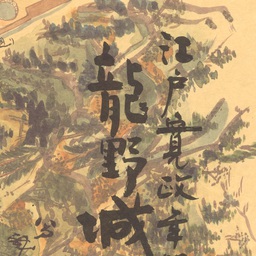 江戸寛政年
龍野城